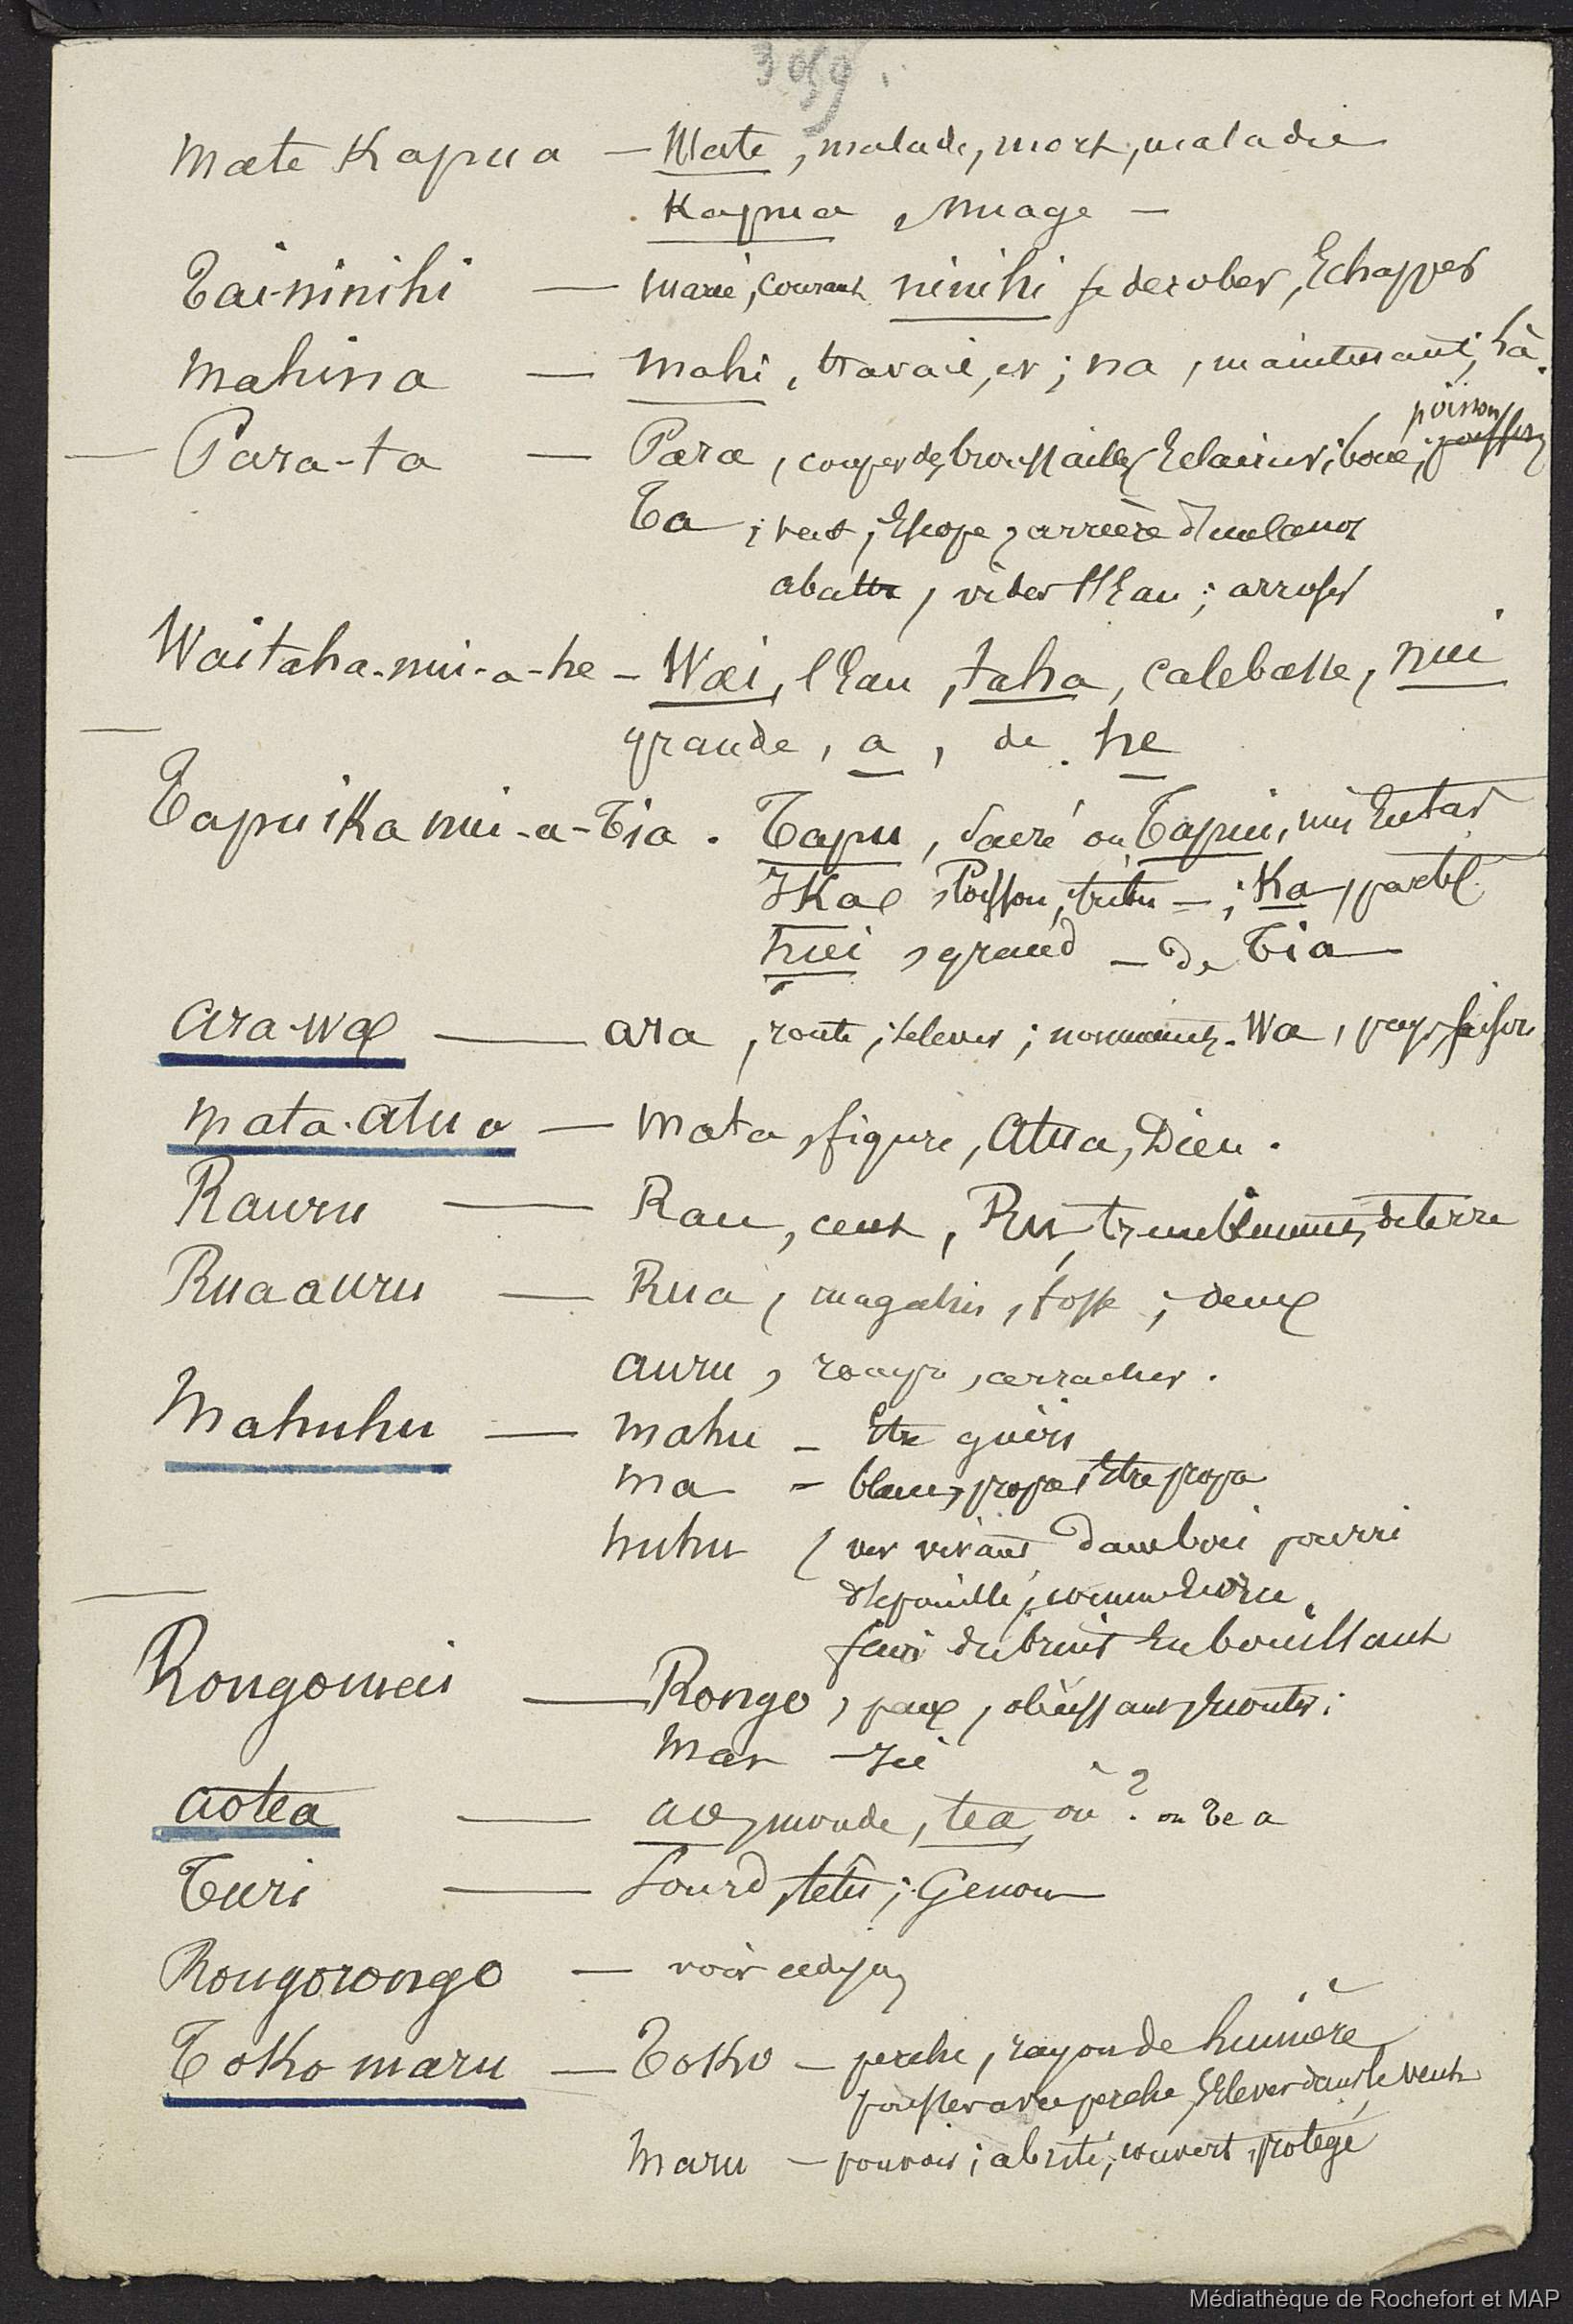 3059.
Mate Kapua — Mate, malade, mort, maladie
Kapua, nuage —
Tai-ninihi — marée, courant ninihi se derober, Echapper
Mahina — Mahi, travail, er; na, maintenant, là.
poisson
— Para-ta — Para, couper des broussailles Eclaircir; boue;
Ta; Escope, arrière d'un canot
abattre, vider l'Eau; arroser
Waitaha-nui-a-he — Wai, l'Eau, taha, calebasse, nui
grande, a, de. he
Tapuika nui-a-Tia. Tapu, Sacré ou Tapui, mis En tas
Ika, Poisson, tribu —; Ka, partic.
nui, grand — de Tia
Ara-wa — ara, route; s'elever; Wa, pays, saison
Mata-atua — Mata, figure, Atua, Dieu.
Rauru — Rau, cent, Ru, tremblement de terre
Ruaauru — Rua, magasin, fosse; deux
auru, rompre, arracher.
Mahuhu — Mahu — Etre guéri
Ma — blanc, propre, Etre propre
huhu, ver vivant dans bois pourri
depouillé, comme
faire du bruit En bouillant
Rongomai — Rongo, paix, obéissant, Ecouter;
Mai — Ici
Aotea — ao, monde, tea, où? ou Te a
Turi — Sourd, têtu; Genou
Rongorongo — voir
Tokomaru — Toko — perche, rayon de lumière
pousser avec perche, s'Elever dans le vent
Maru — pouvoir; abrité, couvert, protégé
Médiathèque de Rochefort et MAP